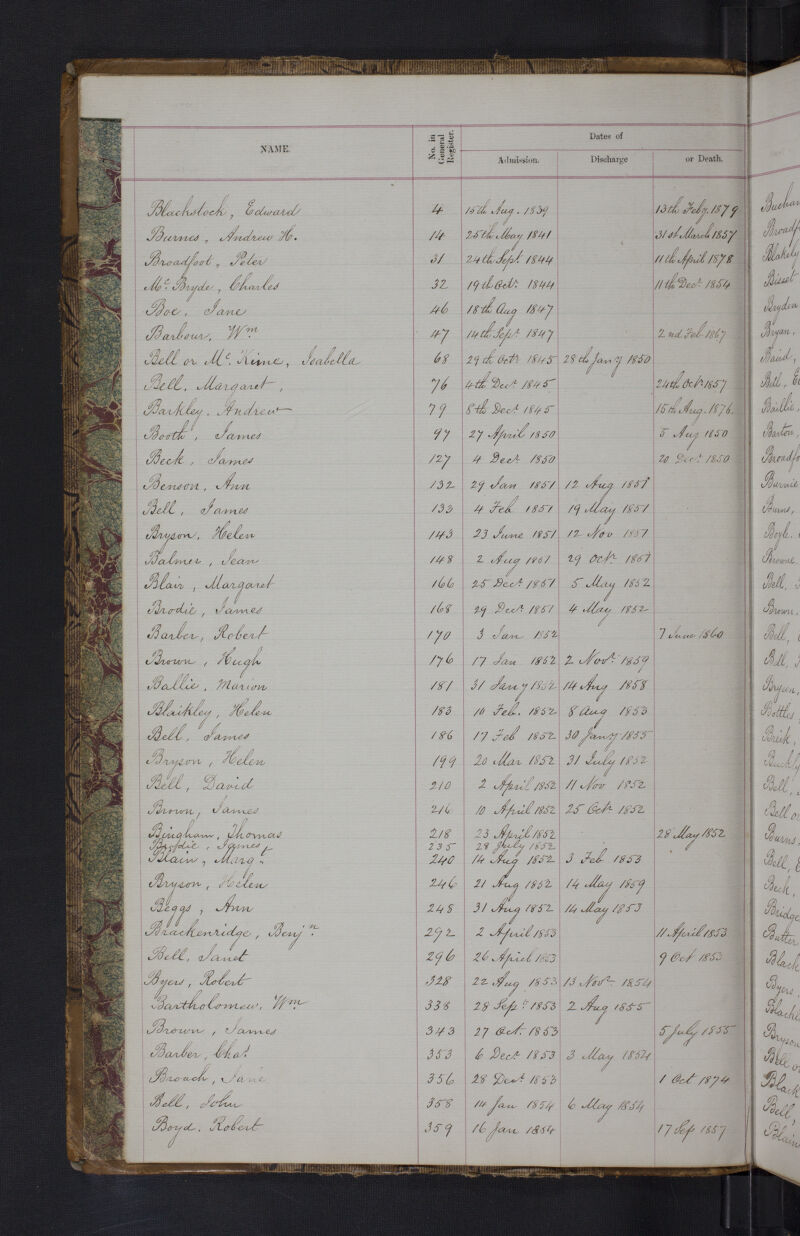 NAME. No. in General Register. Dates of
Admission. Discharge or Death.
Blackstock, Edward 4 15th Aug. 1839 13th Feby. 1879
Burnes, Andrew H. 14 25th May 1841 31st March 1857
Broadfoot, Peter 31 24th Sept. 1844 11th April 1878
Mc. Bryde, Charles 32 19th Octr. 1844 11th Decr. 1854
Boe, Jane 46 18th Aug 1847
Barbour, Wm 47 14th Sepr. 1847 2nd Feb. 1867
Bell or Mc. Kime, Isabella 68 29th Octr 1845 28th Jany 1850
Bell, Margaret, 76 4th Decr 1845 24th Octr 1857
Barkley, Andrew 79 8th Decr 1845 15th Aug. 1876.
Booth, James 97 27 April 1850 5 Aug 1850
Beck, James 127 4 Decr 1850 20 Decr. 1850
Benson, Ann 132 29 Jan 1851 12 Aug 1851
Bell, James 133 4 Feb 1851 19 May 1851
Bryson, Helen 143 23 June 1851 12 Nov 1851
Balmer, Jean 148 2 Aug 1851 29 Octr 1851
Blair, Margaret 166 25 Decr 1851 5 May 1852
Brodie, James 168 29 Decr 1851 4 May 1852
Barber, Robert 170 3 Jan 1852 7 June 1860
Brown, Hugh 176 17 Jan 1852 2 Novr. 1859
Ballie, Marion 181 31 Jany 1852 14 Aug 1858
Blaikley, Helen 183 10 Feb. 1852 8 Aug 1853
Bell, James 186 17 Feb 1852 30 Jany 1855
Bryson, Helen 199 20 Mar 1852 31 July 1852
Bell, David 210 2 April 1852 11 Nov 1852
Brown, James 216 10 April 1852 25 Octr 1852
Bingham, Thomas 218 23 April 1852 28 May 1852
Brodie, James 235 28 July 1852
Blain, Margt. 240 14 Aug 1852 3 Feb 1853
Bryson, Helen 246 21 Aug 1852 14 May 1859
Beggs, Ann 248 31 Aug 1852 14 May 1853
Brackenridge, Benjn. 292 2 April 1853 11 April 1853
Bell, Janet 296 26 April 1853 9 Oct 1853
Byers, Robert 328 22 Aug 1853 13 Novr. 1854
Bartholomew, Wm 338 28 Sepr. 1853 2 Aug 1855
Brown, James 343 27 Oct. 1853 5 July 1855
Barber, Chas. 353 6 Decr 1853 3 May 1854
Broach, Jane 356 28 Decr 1853 1 Oct 1874
Bell, John 358 14 Jan 1854 6 May 1854
Boyd, Robert 359 16 Jan 1854 17 Sep 1857
Blakely
Bisset
Bryan,
Baird,
Baillie,
Barton,
Burnie
Burns,
Boyle.
Browne
Bell,
Brown.
Bell,
Bell,
Bryson,
Bottles
Bell,
Bell or
Burns
Bell,
Beck,
Bridge
Butter
Black
Byers,
Bryson
Bell or
Black
Bell,
Blain